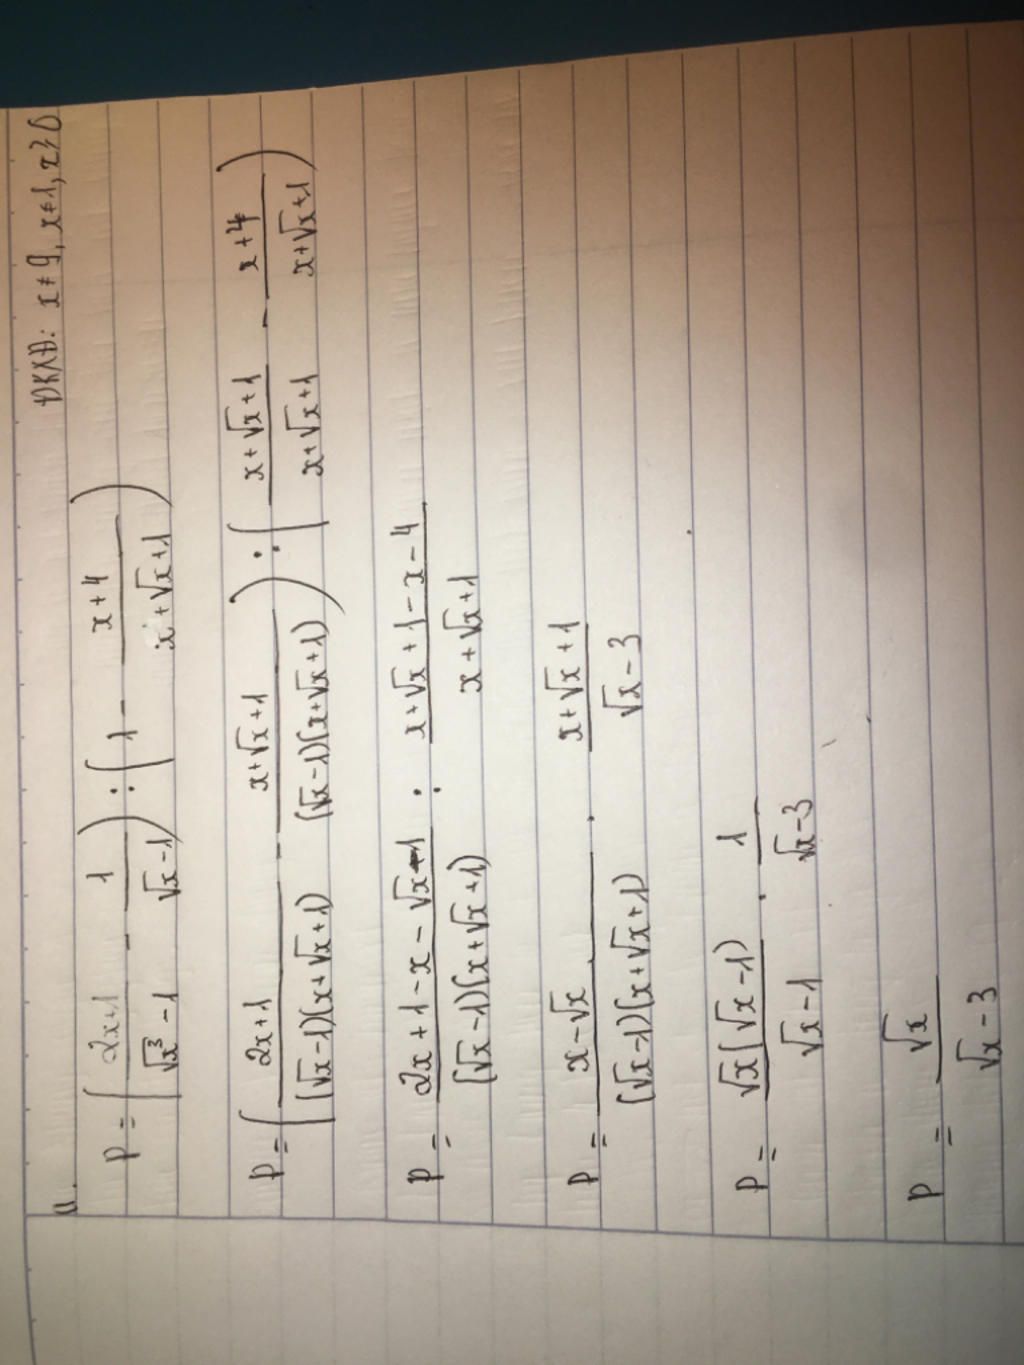 a. ĐKXĐ: x ≠ 9, x ≠ 1, x ≥ 0
P = ( (2x+1)/(√x³ - 1) - 1/(√x - 1) ) : ( 1 - (x+4)/(x+√x+1) )
P = ( (2x+1)/((√x-1)(x+√x+1)) - (x+√x+1)/((√x-1)(x+√x+1)) ) : ( (x+√x+1)/(x+√x+1) - (x+4)/(x+√x+1) )
P = (2x+1-x-√x-1)/((√x-1)(x+√x+1)) : (x+√x+1-x-4)/(x+√x+1)
P = (x-√x)/((√x-1)(x+√x+1)) . (x+√x+1)/(√x-3)
P = (√x(√x-1))/(√x-1) . 1/(√x-3)
P = √x/(√x-3)